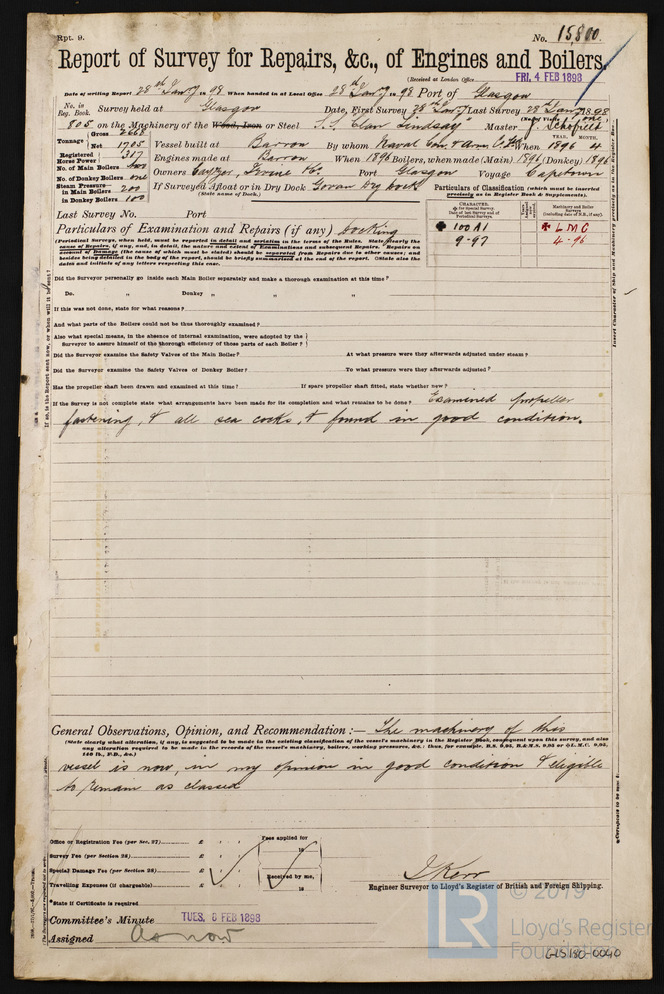 Rpt. 9.
No. 15,800
Report of Survey for Repairs, &c., of Engines and Boilers.
(Received at London Office FRI. 4 FEB 1898
Date of writing Report 28th Jany 98 When handed in at Local Office 28th Jany 98 Port of Glasgow
No. in Reg. Book. Survey held at Glasgow Date, First Survey 28th Jany Last Survey 28th Jany 1898
(No. of Visits one)
805 on the Machinery of the Wood, Iron or Steel S.S. "Clan Lindsay" Master J. Schofield
Tonnage Gross 2668
Net 1705
Vessel built at Barrow By whom Naval Con. & Arm. Co. Ld When 1896 4
YEAR. MONTH.
Registered Horse Power 317
Engines made at Barrow When 1896 Boilers, when made (Main) 1896 (Donkey) 1896
No. of Main Boilers two
Owners Cayzer, Irvine & Co. Port Glasgow Voyage Capetown
No. of Donkey Boilers one
Steam Pressure in Main Boilers 200
in Donkey Boilers 100
If Surveyed Afloat or in Dry Dock Govan Dry Dock
(State name of Dock.)
Particulars of Classification (which must be inserted precisely as in Register Book & Supplements).
Last Survey No. Port
CHARACTER.
for Special Survey.
Date of last Survey and of Periodical Surveys.
Machinery and Boiler Surveys
(including date of N.B., if any).
100 A1
9-97
LMC
4-96
Particulars of Examination and Repairs (if any) Docking
(Periodical Surveys, when held, must be reported in detail and seriatim in the terms of the Rules. State clearly the
cause of Repairs, if any, and, in detail, the nature and extent of Examinations and subsequent Repairs. Repairs on
account of Damage (the cause of which must be stated) should be separated from Repairs due to other causes; and
besides being detailed in the body of the report, should be briefly summarised at the end of the report. State also the
dates and initials of any letters respecting this case.)
Did the Surveyor personally go inside each Main Boiler separately and make a thorough examination at this time?
Do. " Donkey " " "
If this was not done, state for what reasons?
And what parts of the Boilers could not be thus thoroughly examined?
Also what special means, in the absence of internal examination, were adopted by the
Surveyor to assure himself of the thorough efficiency of those parts of each Boiler?
Did the Surveyor examine the Safety Valves of the Main Boiler? At what pressure were they afterwards adjusted under steam?
Did the Surveyor examine the Safety Valves of Donkey Boiler? To what pressure were they afterwards adjusted?
Has the propeller shaft been drawn and examined at this time? If spare propeller shaft fitted, state whether new?
If the Survey is not complete state what arrangements have been made for its completion and what remains to be done? Examined propeller
fastening, & all sea cocks, & found in good condition.
General Observations, Opinion, and Recommendation:— The machinery of this
(State clearly what alteration, if any, is suggested to be made in the existing classification of the vessel's machinery in the Register Book, consequent upon this survey, and also
any alteration required to be made in the records of the vessel's machinery, boilers, working pressures, &c.: thus, for example, B.S. 9,95, B.&M.S. 9,95 or L.M.C. 9,95,
140 lb., F.D., &c.)
vessel is now, in my opinion in good condition & eligible
to remain as classed
Office or Registration Fee (per Sec. 27) £ : : Fees applied for
Survey Fee (per Section 28) £ : : 18
Special Damage Fee (per Section 28) £ : : Received by me,
Travelling Expenses (if chargeable) £ : : 18
*State if Certificate is required
J Kerr
Engineer Surveyor to Lloyd's Register of British and Foreign Shipping.
Committee's Minute TUES. 8 FEB 1898
Assigned As now
© 2019
LR
Lloyd's Register
Foundation
GLS180-0040